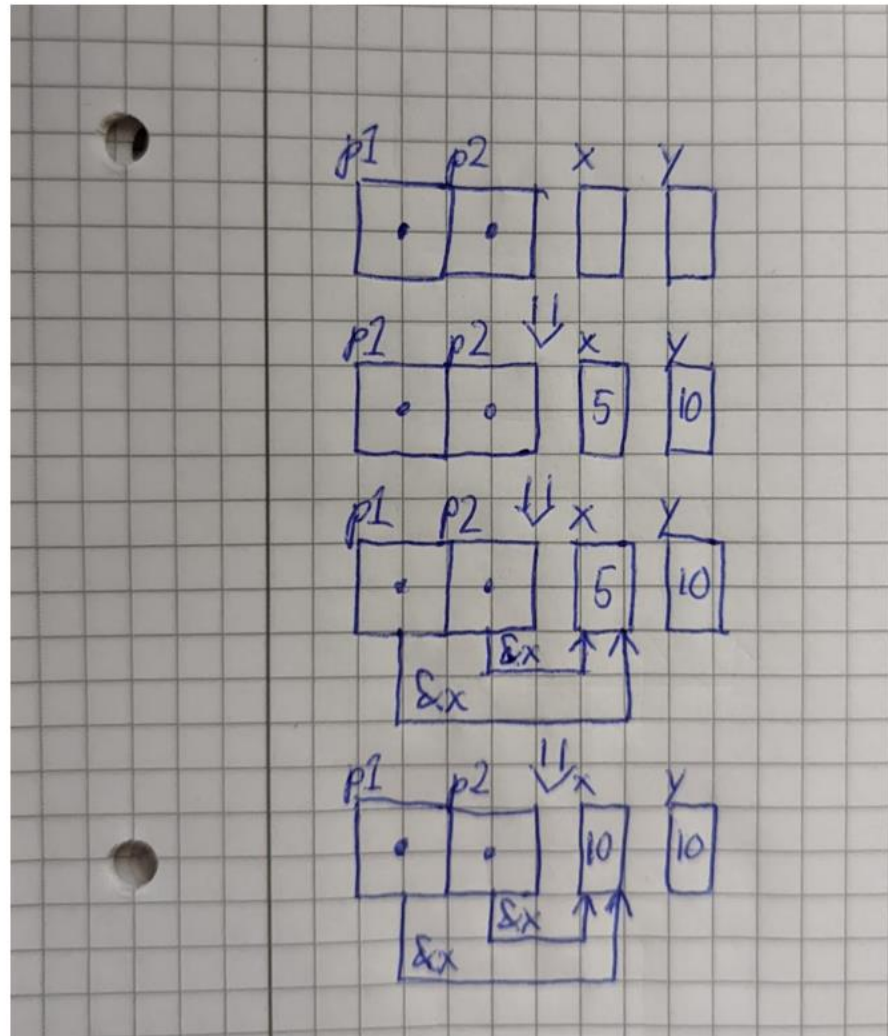 p1 p2 x y
p1 p2 x y
5 10
p1 p2 x y
5 10
&x
&x
p1 p2 x y
10 10
&x
&x